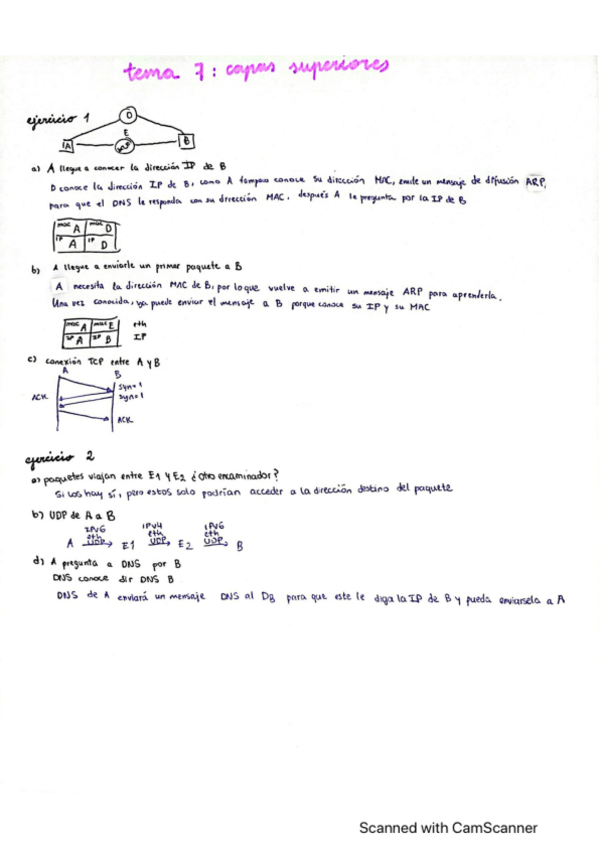 tema 7: capas superiores
ejercicio 1
D
E
A
B
a) A llegue a conocer la dirección IP de B
D conoce la dirección IP de B, como A tampoco conoce su dirección MAC, emite un mensaje de difusión ARP,
para que el DNS le responda con su dirección MAC, después A le pregunta por la IP de B
MAC A MAC D
IP A IP D
b) A llegue a enviarle un primer paquete a B
A necesita la dirección MAC de B, por lo que vuelve a emitir un mensaje ARP para aprenderla.
Una vez conocida, ya puede enviar el mensaje a B porque conoce su IP y su MAC
MAC A MAC E eth
IP A IP B IP
c) conexión TCP entre A y B
A B
syn=1
ACK syn=1
ACK
ejercicio 2
a) paquetes viajan entre E1 y E2 ¿otro encaminador?
Si los hay sí, pero estos solo podrían acceder a la dirección destino del paquete
b) UDP de A a B
IPv6 IPv4 IPv6
eth eth eth
A UDP E1 UDP E2 UDP B
d) A pregunta a DNS por B
DNS conoce dir DNS B
DNS de A enviará un mensaje DNS al DB para que este le diga la IP de B y pueda enviársela a A
Scanned with CamScanner